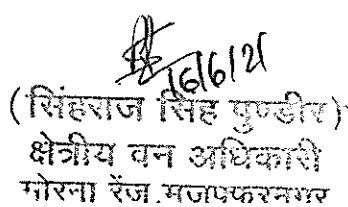 16/6/21
(सिंहराज सिंह पुण्डीर)
क्षेत्रीय वन अधिकारी
मोरना रेंज, मुजफ्फरनगर